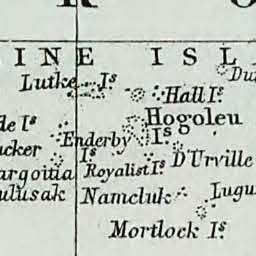 INE ISL
Lutke Is
Hall Is.
Du
Hogoleu
de Is
Enderby
Is
Is
ucker
D'Urville
argoitia
Royalist Is.
ulusak
Namcluk
Lugu
Mortlock Is.